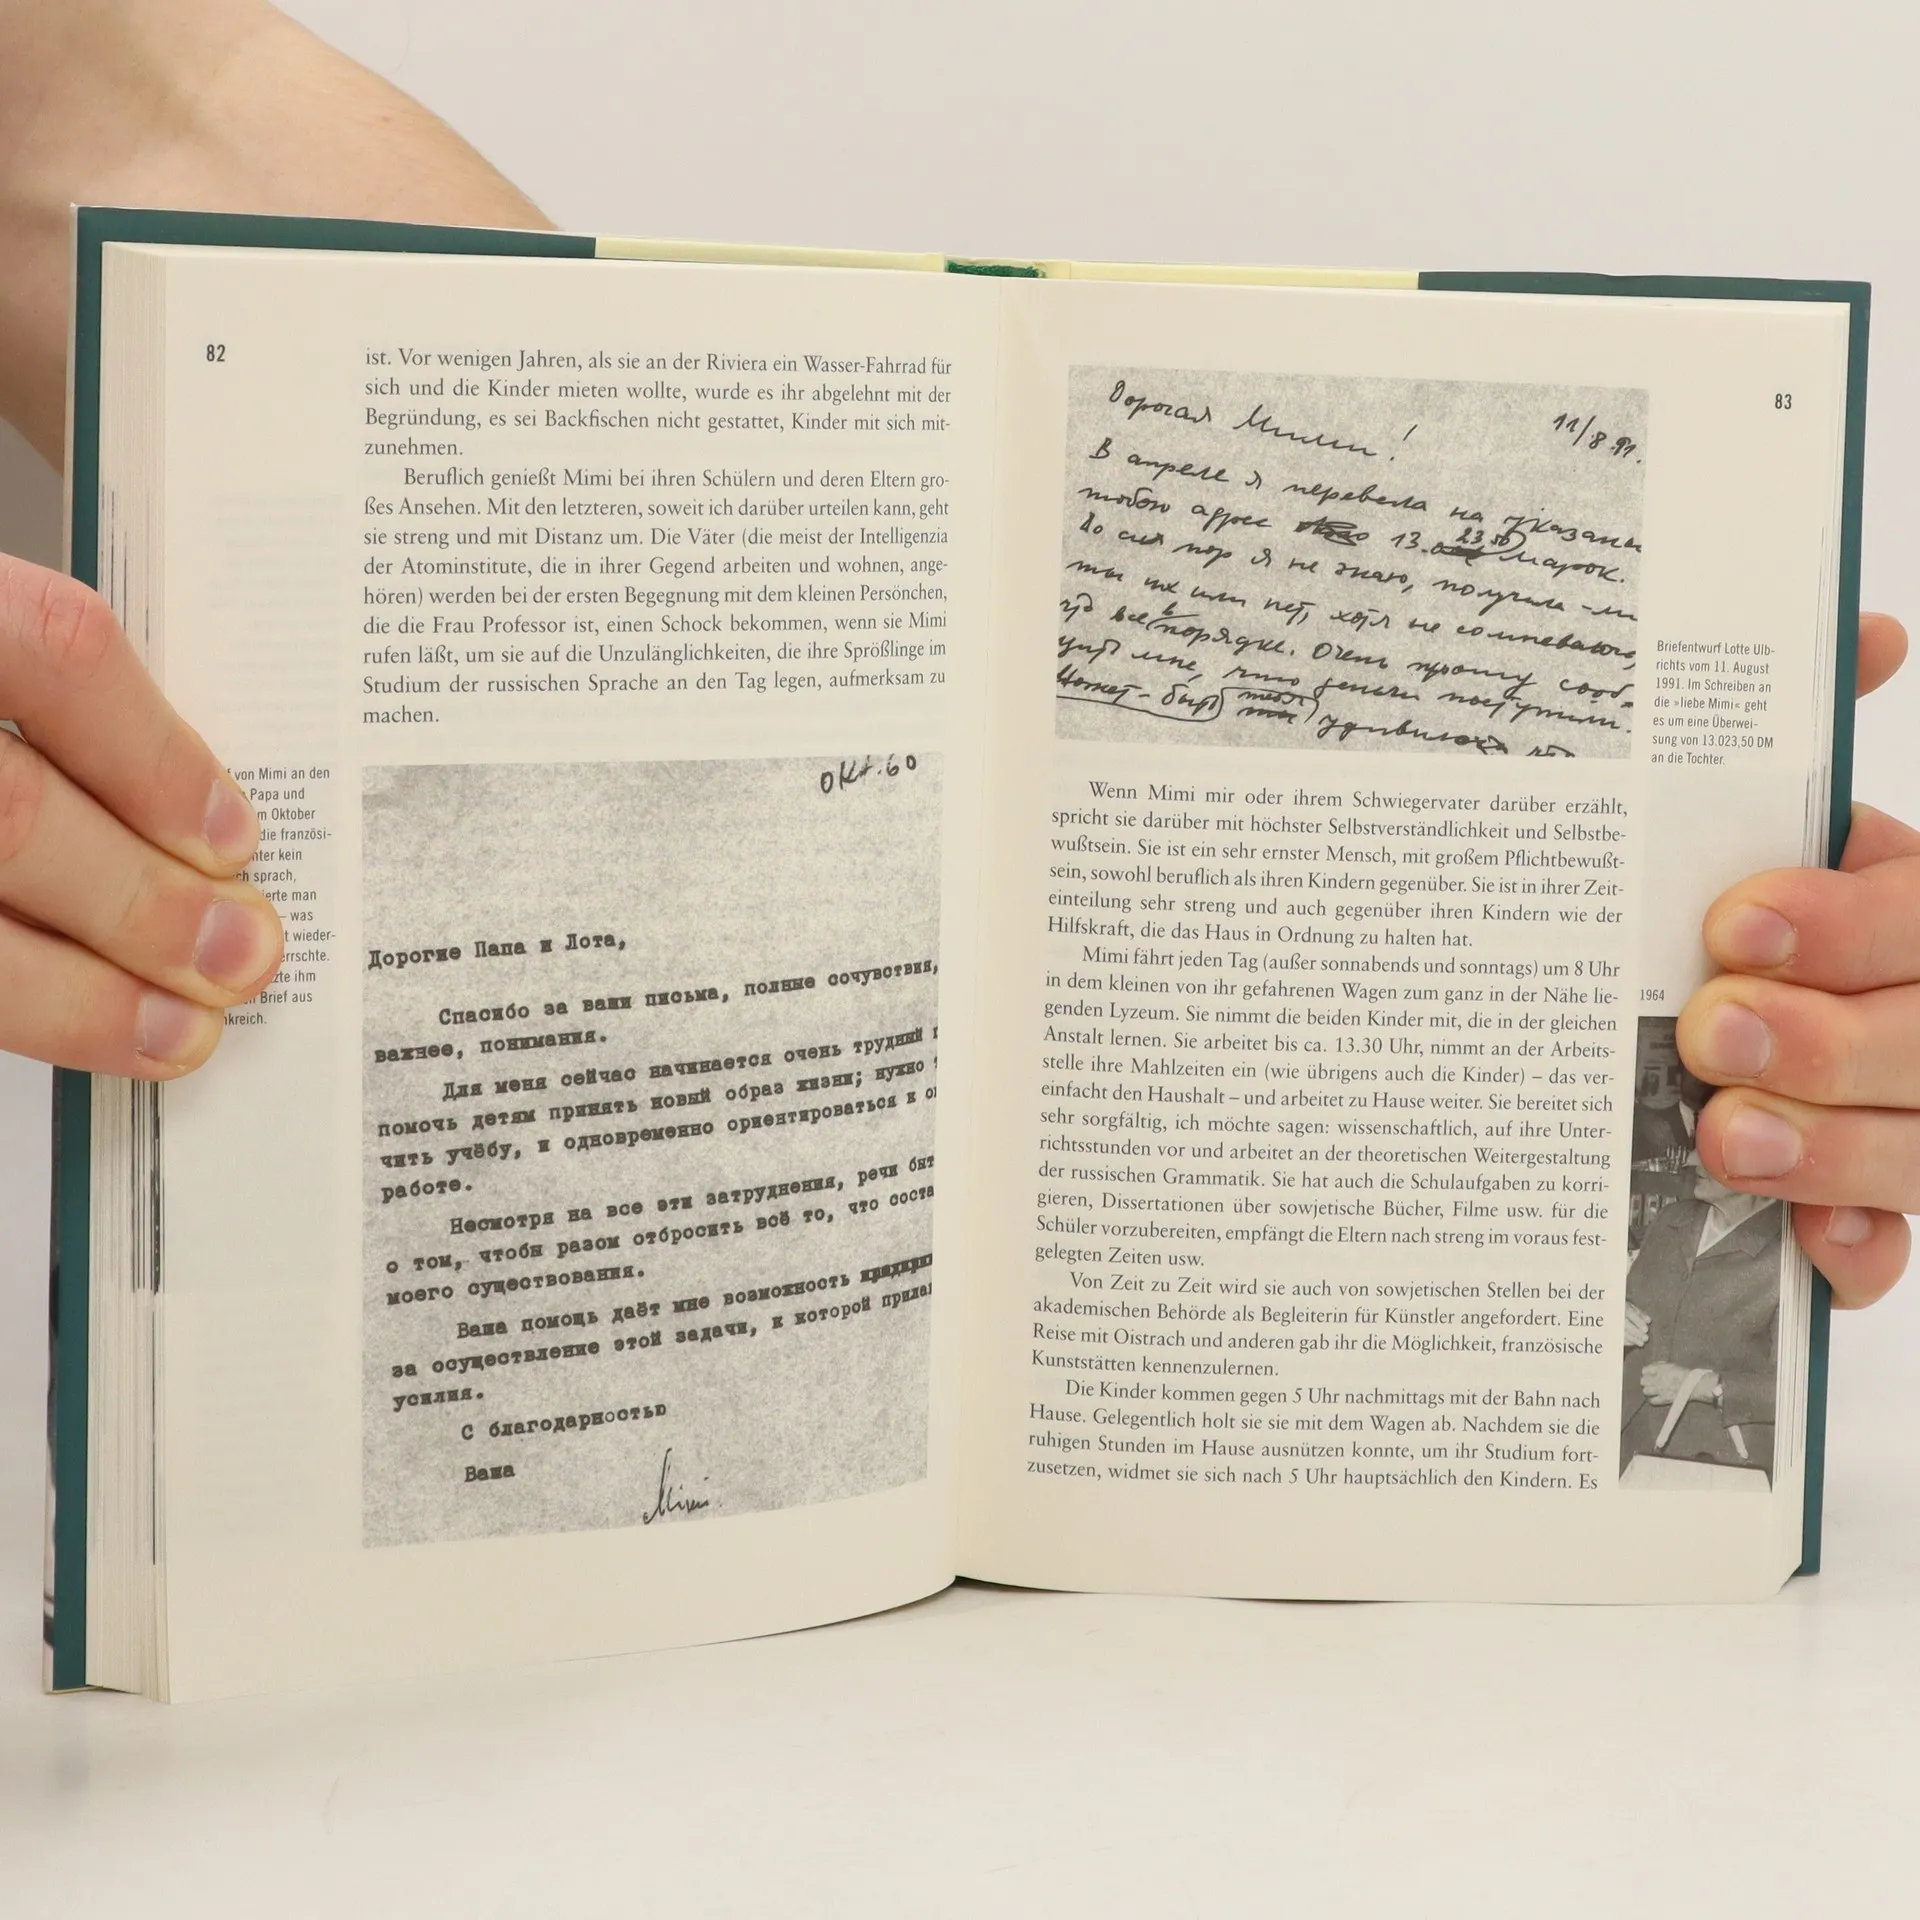 82
ist. Vor wenigen Jahren, als sie an der Riviera ein Wasser-Fahrrad für
sich und die Kinder mieten wollte, wurde es ihr abgelehnt mit der
Begründung, es sei Backfischen nicht gestattet, Kinder mit sich mit-
zunehmen.
Beruflich genießt Mimi bei ihren Schülern und deren Eltern gro-
ßes Ansehen. Mit den letzteren, soweit ich darüber urteilen kann, geht
sie streng und mit Distanz um. Die Väter (die meist der Intelligenzia
der Atominstitute, die in ihrer Gegend arbeiten und wohnen, ange-
hören) werden bei der ersten Begegnung mit dem kleinen Persönchen,
die die Frau Professor ist, einen Schock bekommen, wenn sie Mimi
rufen läßt, um sie auf die Unzulänglichkeiten, die ihre Sprößlinge im
Studium der russischen Sprache an den Tag legen, aufmerksam zu
machen.
von Mimi an den
Papa und
m Oktober
die französi-
kein
sprach,
man
– was
t wieder-
ihm
Brief aus
окт. 60
Дорогие Папа и Лота,
Спасибо за ваши письма, полные сочувствия,
важнее, понимания.
Для меня сейчас начинается очень трудный
помочь детям принять новый образ жизни; нужно
чить учёбу, и одновременно ориентироваться в
работе.
Несмотря на все эти затруднения, речи быт
о том, чтобы разом отбросить всё то, что соста
моего существования.
Ваша помощь даёт мне возможность
за осуществление этой задачи, к которой прила
усилия.
С благодарностью
Ваша
Mimi.
83
Дорогая Мими!
11/8.91.
В апреле я перевела на указанн
тобою адрес 13.023,50 марок.
До сих пор я не знаю, получила-ли
ты их или нет, хотя не сомневаюсь,
что все в порядке. Очень прошу сооб-
щить мне, что деньги поступили.
Может-быть ты удивилась что
Briefentwurf Lotte Ulb-
richts vom 11. August
1991. Im Schreiben an
die »liebe Mimi« geht
es um eine Überwei-
sung von 13.023,50 DM
an die Tochter.
Wenn Mimi mir oder ihrem Schwiegervater darüber erzählt,
spricht sie darüber mit höchster Selbstverständlichkeit und Selbstbe-
wußtsein. Sie ist ein sehr ernster Mensch, mit großem Pflichtbewußt-
sein, sowohl beruflich als ihren Kindern gegenüber. Sie ist in ihrer Zeit-
einteilung sehr streng und auch gegenüber ihren Kindern wie der
Hilfskraft, die das Haus in Ordnung zu halten hat.
Mimi fährt jeden Tag (außer sonnabends und sonntags) um 8 Uhr
in dem kleinen von ihr gefahrenen Wagen zum ganz in der Nähe lie-
genden Lyzeum. Sie nimmt die beiden Kinder mit, die in der gleichen
Anstalt lernen. Sie arbeitet bis ca. 13.30 Uhr, nimmt an der Arbeits-
stelle ihre Mahlzeiten ein (wie übrigens auch die Kinder) – das ver-
einfacht den Haushalt – und arbeitet zu Hause weiter. Sie bereitet sich
sehr sorgfältig, ich möchte sagen: wissenschaftlich, auf ihre Unter-
richtsstunden vor und arbeitet an der theoretischen Weitergestaltung
der russischen Grammatik. Sie hat auch die Schulaufgaben zu korri-
gieren, Dissertationen über sowjetische Bücher, Filme usw. für die
Schüler vorzubereiten, empfängt die Eltern nach streng im voraus fest-
gelegten Zeiten usw.
Von Zeit zu Zeit wird sie auch von sowjetischen Stellen bei der
akademischen Behörde als Begleiterin für Künstler angefordert. Eine
Reise mit Oistrach und anderen gab ihr die Möglichkeit, französische
Kunststätten kennenzulernen.
Die Kinder kommen gegen 5 Uhr nachmittags mit der Bahn nach
Hause. Gelegentlich holt sie sie mit dem Wagen ab. Nachdem sie die
ruhigen Stunden im Hause ausnützen konnte, um ihr Studium fort-
zusetzen, widmet sie sich nach 5 Uhr hauptsächlich den Kindern. Es
1964